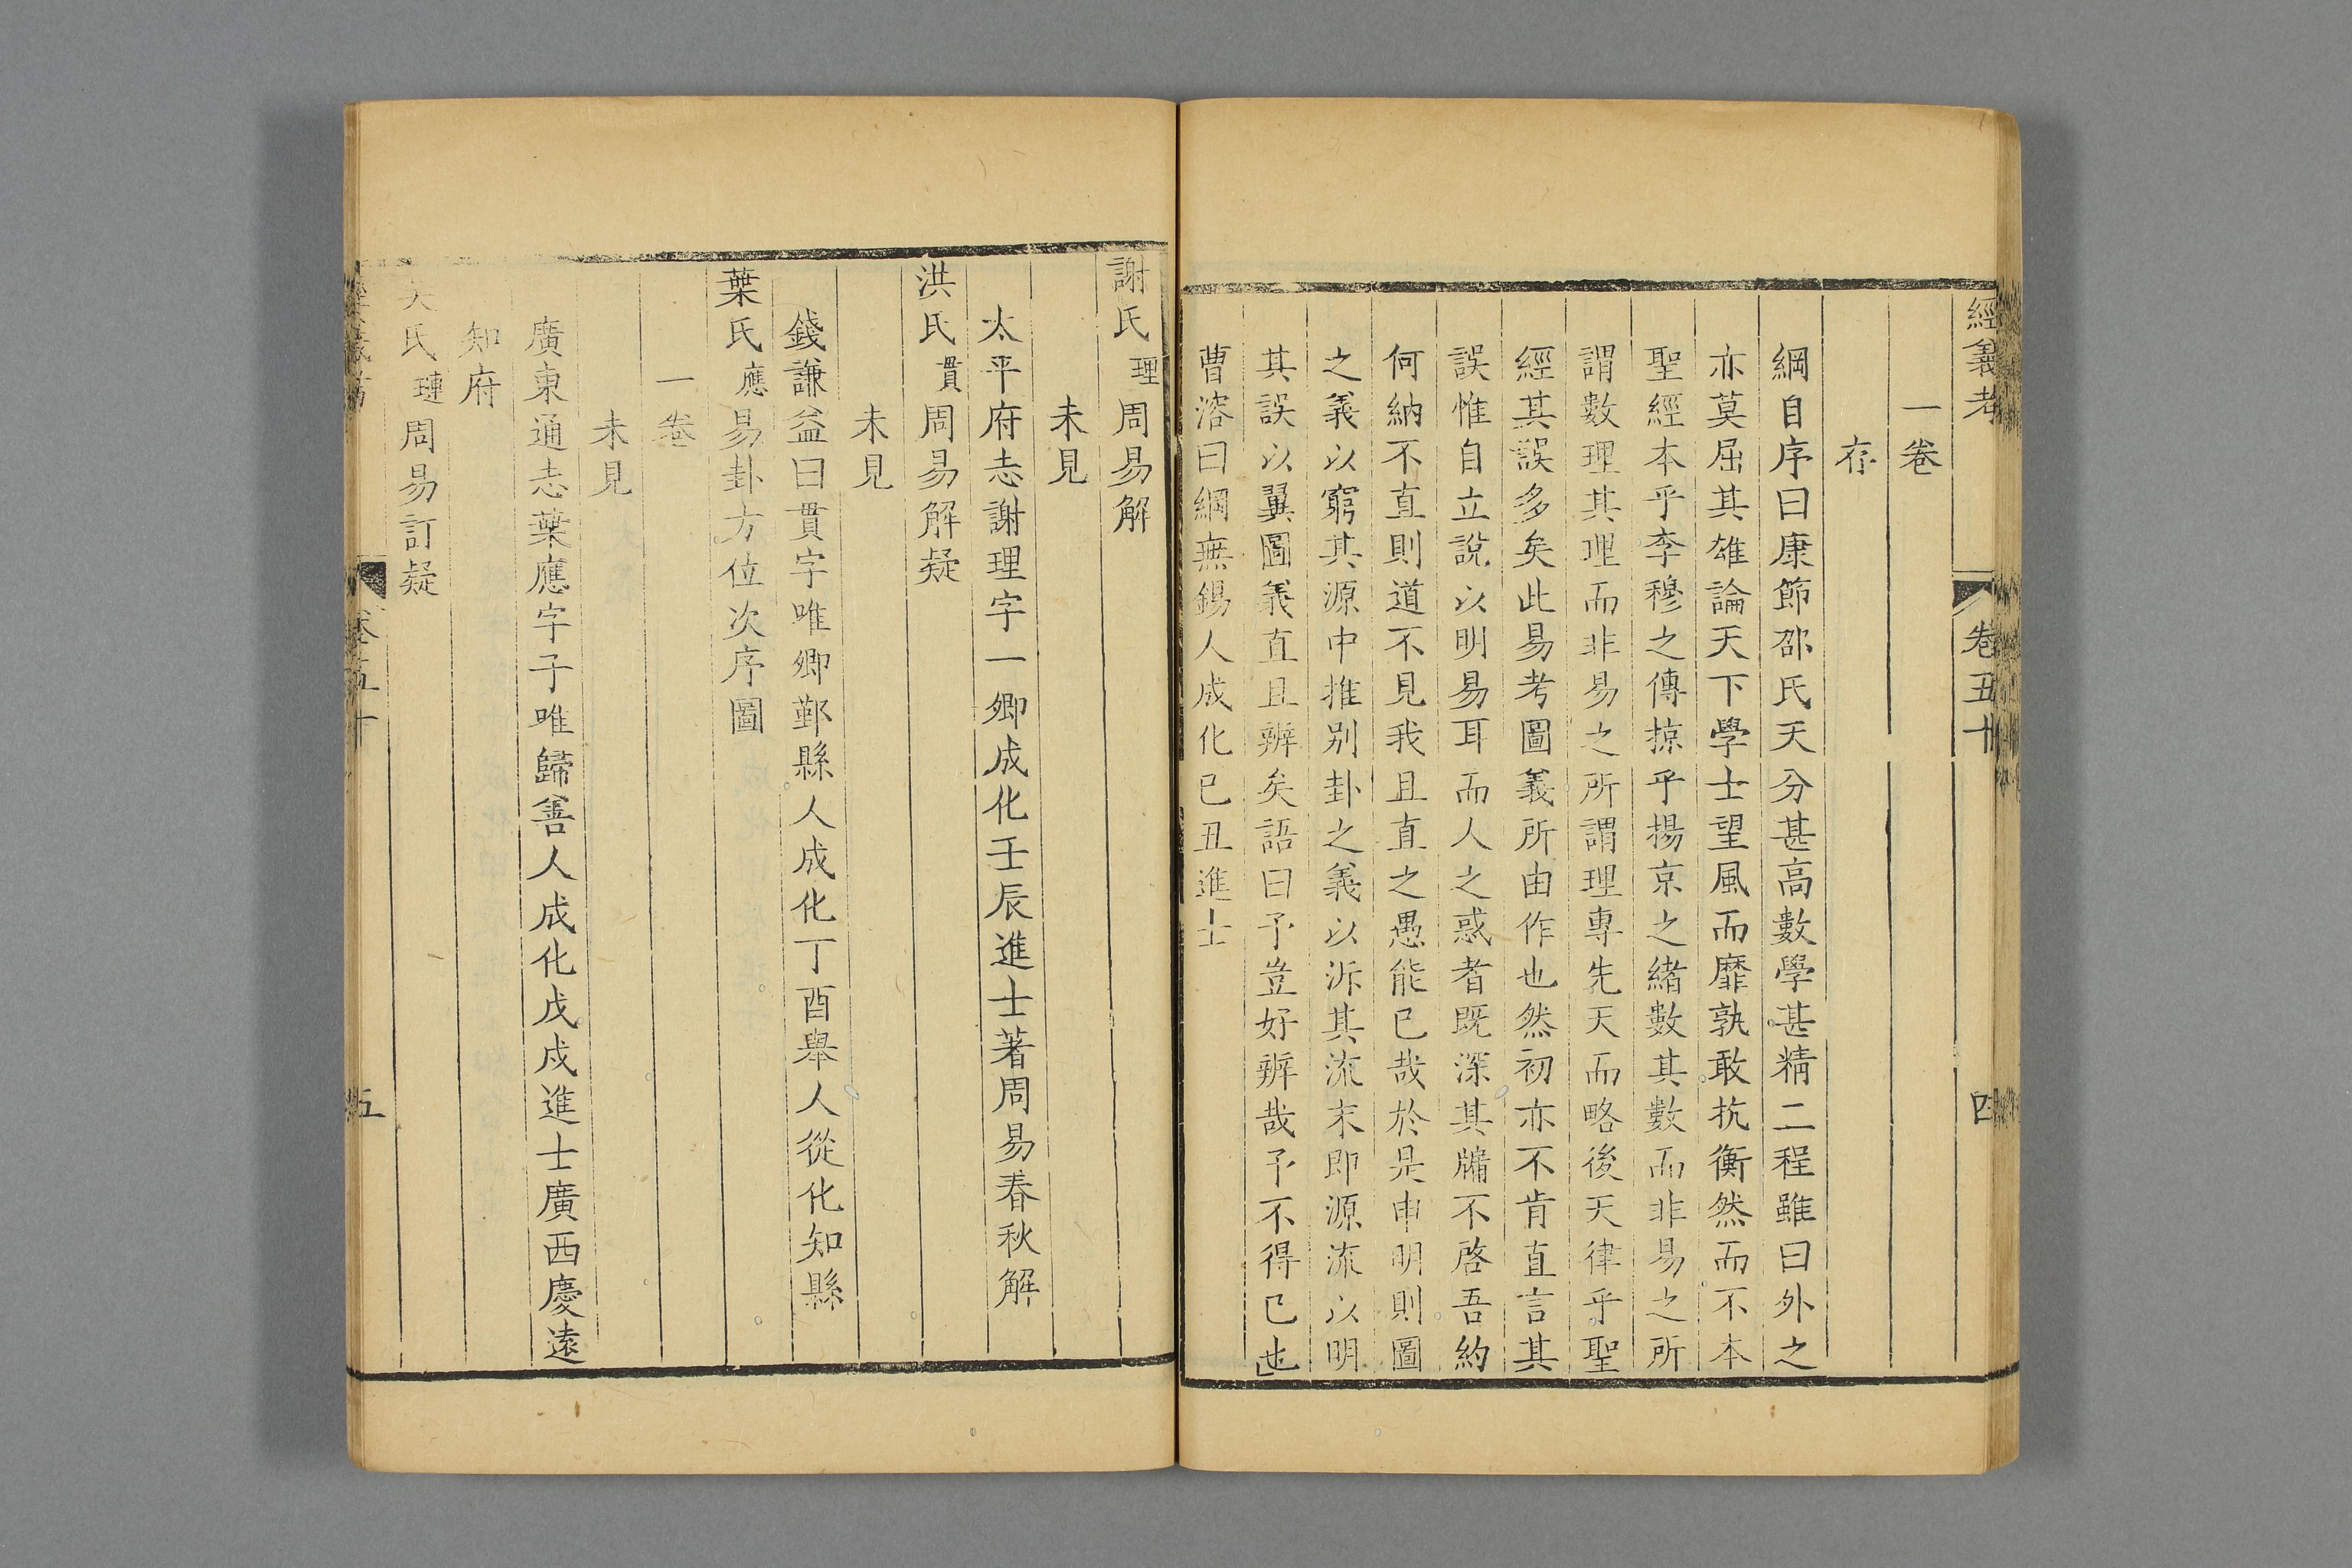 經義考 卷五十 四
一卷
存
綱自序曰康節邵氏天分甚高數學甚精二程雖曰外之
亦莫屈其雄論天下學士望風而靡孰敢抗衡然而不本
聖經本乎李穆之傳掠乎揚京之緒數其數而非易之所
謂數理其理而非易之所謂理專先天而略後天律乎聖
經其誤多矣此易考圖義所由作也然初亦不肯直言其
誤惟自立說以明易耳而人之惑者既深其牖不啓吾約
何納不直則道不見我且直之愚能已哉於是申明則圖
之義以窮其源中推别卦之義以泝其流末即源流以明
其誤以翼圖義直且辨矣語曰予豈好辨哉予不得已也
曹溶曰綱無錫人成化已丑進士
謝氏理周易解
未見
太平府志謝理字一卿成化壬辰進士著周易春秋解
洪氏貫周易解疑
未見
錢謙益曰貫字唯卿鄞縣人成化丁酉舉人從化知縣
葉氏應易卦方位次序圖
一卷
未見
廣東通志葉應字子唯歸善人成化戊戌進士廣西慶遠
知府
氏璉周易訂疑
卷五十 五